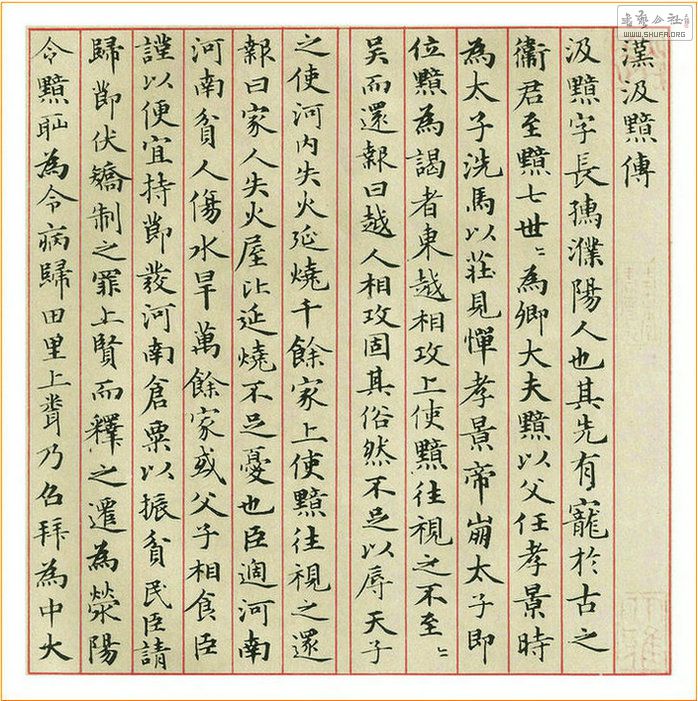 漢汲黯傳
汲黯字長孺濮陽人也其先有寵於古之
衞君至黯七世〻為卿大夫黯以父任孝景時
為太子洗馬以莊見憚孝景帝崩太子即
位黯為謁者東越相攻上使黯往視之不至〻
吳而還報曰越人相攻固其俗然不足以辱天子
之使河內失火延燒千餘家上使黯往視之還
報曰家人失火屋比延燒不足憂也臣過河南
河南貧人傷水旱萬餘家或父子相食臣
謹以便宜持節發河南倉粟以振貧民臣請
歸節伏矯制之罪上賢而釋之遷為滎陽
令黯恥為令病歸田里上聞乃召拜為中大
WWW.SHUFA.ORG